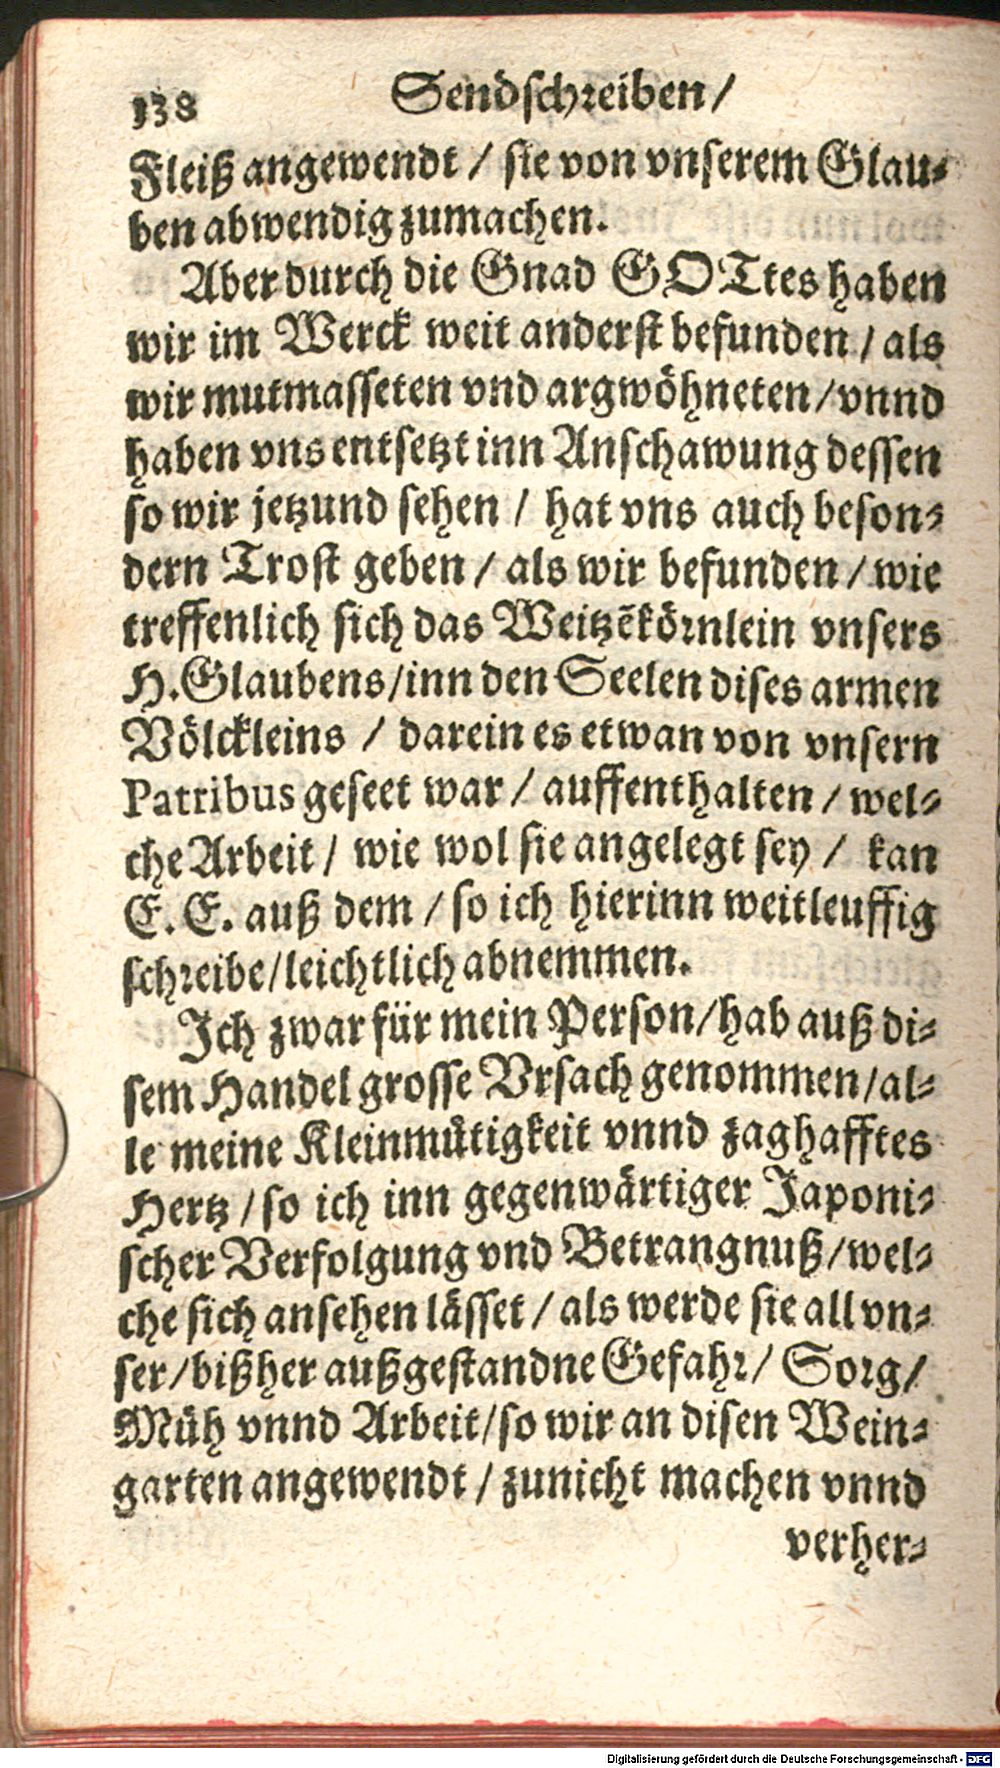 138 Sendschreiben/
Fleiß angewendt / sie von vnserem Glau-
ben abwendig zumachen.
Aber durch die Gnad GOTtes haben
wir im Werck weit anderst befunden / als
wir mutmasseten vnd argwöhneten / vnnd
haben vns entsetzt inn Anschawung dessen
so wir jetzund sehen / hat vns auch beson-
dern Trost geben / als wir befunden / wie
treffenlich sich das Weitzẽkörnlein vnsers
H. Glaubens / inn den Seelen dises armen
Völckleins / darein es etwan von vnsern
Patribus geseet war / auffenthalten / wel-
che Arbeit / wie wol sie angelegt sey / kan
E. E. auß dem / so ich hierinn weitleuffig
schreibe / leichtlich abnemmen.
Ich zwar für mein Person / hab auß di-
sem Handel grosse Vrsach genommen / al-
le meine Kleinmütigkeit vnnd zaghafftes
Hertz / so ich inn gegenwärtiger Japoni-
scher Verfolgung vnd Betrangnuß / wel-
che sich ansehen lässet / als werde sie all vn-
ser / bißher außgestandne Gefahr / Sorg /
Müh vnnd Arbeit / so wir an disen Wein-
garten angewendt / zunicht machen vnnd
verher-
Digitalisierung gefördert durch die Deutsche Forschungsgemeinschaft - DFG